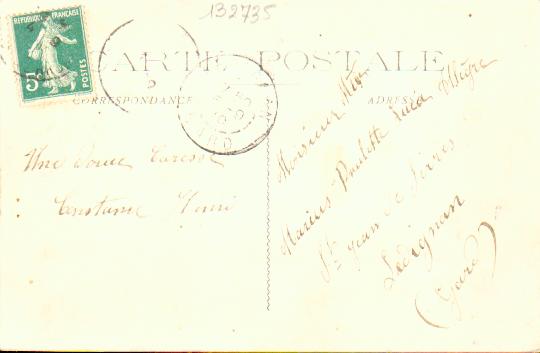 132735
RÉPUBLIQUE FRANÇAISE
5c
POSTES
CARTE POSTALE
CORRESPONDANCE
ADRESSE
GARD
Une douce Caresse
Constance Henri
Monsieur
Marius Paulette Luca Allègre
St Jean de Serres
Lédignan
(Gard)